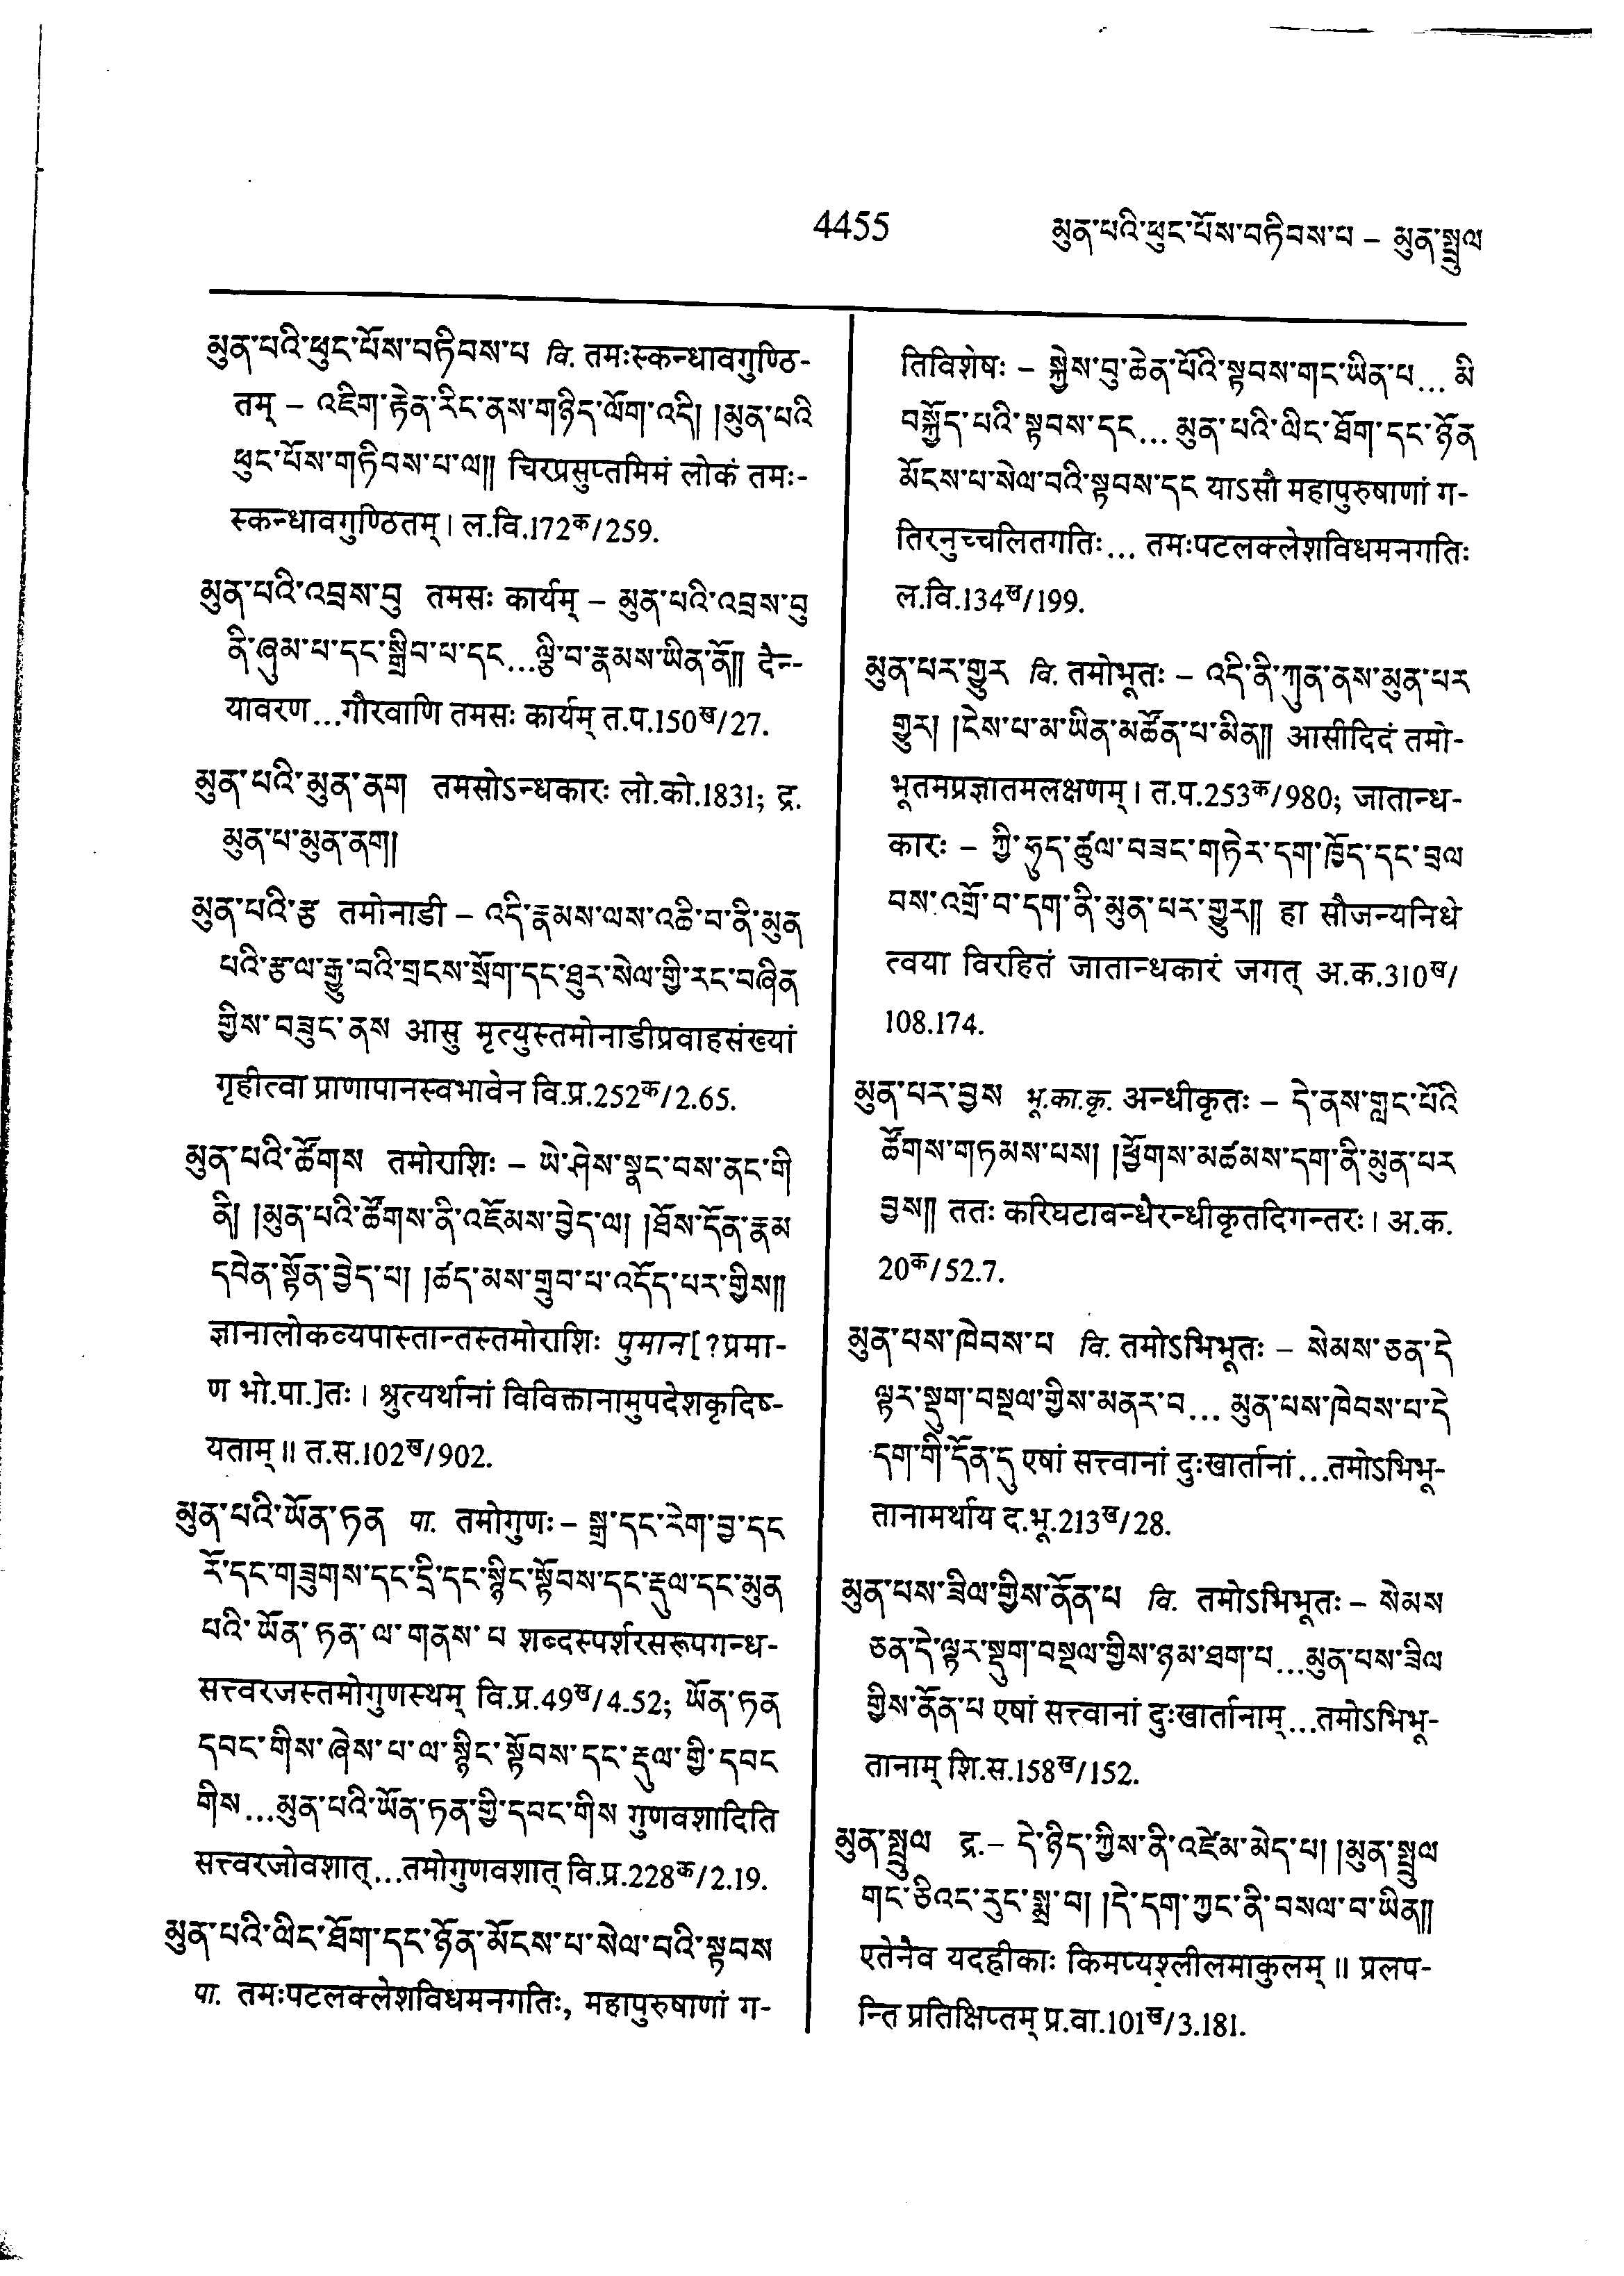 4455
མུན་པའི་ཕུང་པོས་བཏིབས་པ – མུན་སྤྲུལ
མུན་པའི་ཕུང་པོས་བཏིབས་པ वि. तमःस्कन्धावगुण्ठि-
तम् – འཇིག་རྟེན་རིང་ནས་གཉིད་ལོག་འདི། །མུན་པའི
ཕུང་པོས་གཏིབས་པ་ལ།། चिरप्रसुप्तमिमं लोकं तमः-
स्कन्धावगुण्ठितम्। ल.वि.172क/259.
མུན་པའི་འབྲས་བུ तमसः कार्यम् – མུན་པའི་འབྲས་བུ
ནི་ཞུམ་པ་དང་སྒྲིབ་པ་དང...ལྕི་བ་རྣམས་ཡིན་ནོ།། दैन्-
यावरण...गौरवाणि तमसः कार्यम् त.प.150ख/27.
མུན་པའི་མུན་ནག तमसोऽन्धकारः लो.को.1831; द्र.
མུན་པ་མུན་ནག།
མུན་པའི་རྩ तमोनाडी – འདི་རྣམས་ལས་འཆི་བ་ནི་མུན
པའི་རྩ་ལ་རྒྱུ་བའི་གྲངས་སྲོག་དང་ཐུར་སེལ་གྱི་རང་བཞིན
གྱིས་བཟུང་ནས आसु मृत्युस्तमोनाडीप्रवाहसंख्यां
गृहीत्वा प्राणापानस्वभावेन वि.प्र.252क/2.65.
མུན་པའི་ཚོགས तमोराशिः – ཡེ་ཤེས་སྣང་བས་ནང་གི
ནི། །མུན་པའི་ཚོགས་ནི་འཇོམས་བྱེད་ལ། །ཐོས་དོན་རྣམ
དབེན་སྟོན་བྱེད་པ། །ཚད་མས་གྲུབ་པ་འདོད་པར་གྱིས།།
ज्ञानालोकव्यपास्तान्तस्तमोराशिः पुमान[?प्रमा-
ण भो.पा.]तः। श्रुत्यर्थानां विविक्तानामुपदेशकृदिष्-
यताम्॥ त.स.102ख/902.
མུན་པའི་ཡོན་ཏན पा. तमोगुणः – སྒྲ་དང་རེག་བྱ་དང
རོ་དང་གཟུགས་དང་དྲི་དང་སྙིང་སྟོབས་དང་རྡུལ་དང་མུན
པའི་ཡོན་ཏན་ལ་གནས་པ शब्दस्पर्शरसरूपगन्ध-
सत्त्वरजस्तमोगुणस्थम् वि.प्र.49ख/4.52; ཡོན་ཏན
དབང་གིས་ཞེས་པ་ལ་སྙིང་སྟོབས་དང་རྡུལ་གྱི་དབང
གིས...མུན་པའི་ཡོན་ཏན་གྱི་དབང་གིས गुणवशादिति
सत्त्वरजोवशात्...तमोगुणवशात् वि.प्र.228क/2.19.
མུན་པའི་ལིང་ཐོག་དང་ཉོན་མོངས་པ་སེལ་བའི་སྟབས
पा. तमःपटलक्लेशविधमनगतिः, महापुरुषाणां ग-
तिविशेषः – སྐྱེས་བུ་ཆེན་པོའི་སྟབས་གང་ཡིན་པ... མི
བསྐྱོད་པའི་སྟབས་དང... མུན་པའི་ལིང་ཐོག་དང་ཉོན
མོངས་པ་སེལ་བའི་སྟབས་དང याऽसौ महापुरुषाणां ग-
तिरनुच्चलितगतिः... तमःपटलक्लेशविधमनगतिः
ल.वि.134ख/199.
མུན་པར་གྱུར वि. तमोभूतः – འདི་ནི་ཀུན་ནས་མུན་པར
གྱུར། །ངེས་པ་མ་ཡིན་མཚོན་པ་མིན།། आसीदिदं तमो-
भूतमप्रज्ञातमलक्षणम्। त.प.253क/980; जातान्ध-
कारः – ཀྱི་ཧུད་ཚུལ་བཟང་གཏེར་དག་ཁྱོད་དང་བྲལ
བས་འགྲོ་བ་དག་ནི་མུན་པར་གྱུར།། हा सौजन्यनिधे
त्वया विरहितं जातान्धकारं जगत् अ.क.310ख/
108.174.
མུན་པར་བྱས भू.का.कृ. अन्धीकृतः – དེ་ནས་གླང་པོའི
ཚོགས་གཏམས་པས། །ཕྱོགས་མཚམས་དག་ནི་མུན་པར
བྱས།། ततः करिघटाबन्धैरन्धीकृतदिगन्तरः। अ.क.
20क/52.7.
མུན་པས་ཁེབས་པ वि. तमोऽभिभूतः – སེམས་ཅན་དེ
ལྟར་སྡུག་བསྔལ་གྱིས་མནར་བ... མུན་པས་ཁེབས་པ་དེ
དག་གི་དོན་དུ एषां सत्त्वानां दुःखार्तानां...तमोऽभिभू-
तानामर्थाय द.भू.213ख/28.
མུན་པས་ཟིལ་གྱིས་ནོན་པ वि. तमोऽभिभूतः – སེམས
ཅན་དེ་ལྟར་སྡུག་བསྔལ་གྱིས་ཉམ་ཐག་པ...མུན་པས་ཟིལ
གྱིས་ནོན་པ एषां सत्त्वानां दुःखार्तानाम्...तमोऽभिभू-
तानाम् शि.स.158ख/152.
མུན་སྤྲུལ द्र.– དེ་ཉིད་ཀྱིས་ནི་འཛེམ་མེད་པ། །མུན་སྤྲུལ
གང་ཅིའང་རུང་སྨྲ་བ། །དེ་དག་ཀྱང་ནི་བསལ་བ་ཡིན།།
एतेनैव यदह्रीकाः किमप्यश्लीलमाकुलम्॥ प्रलप-
न्ति प्रतिक्षिप्तम् प्र.वा.101ख/3.181.